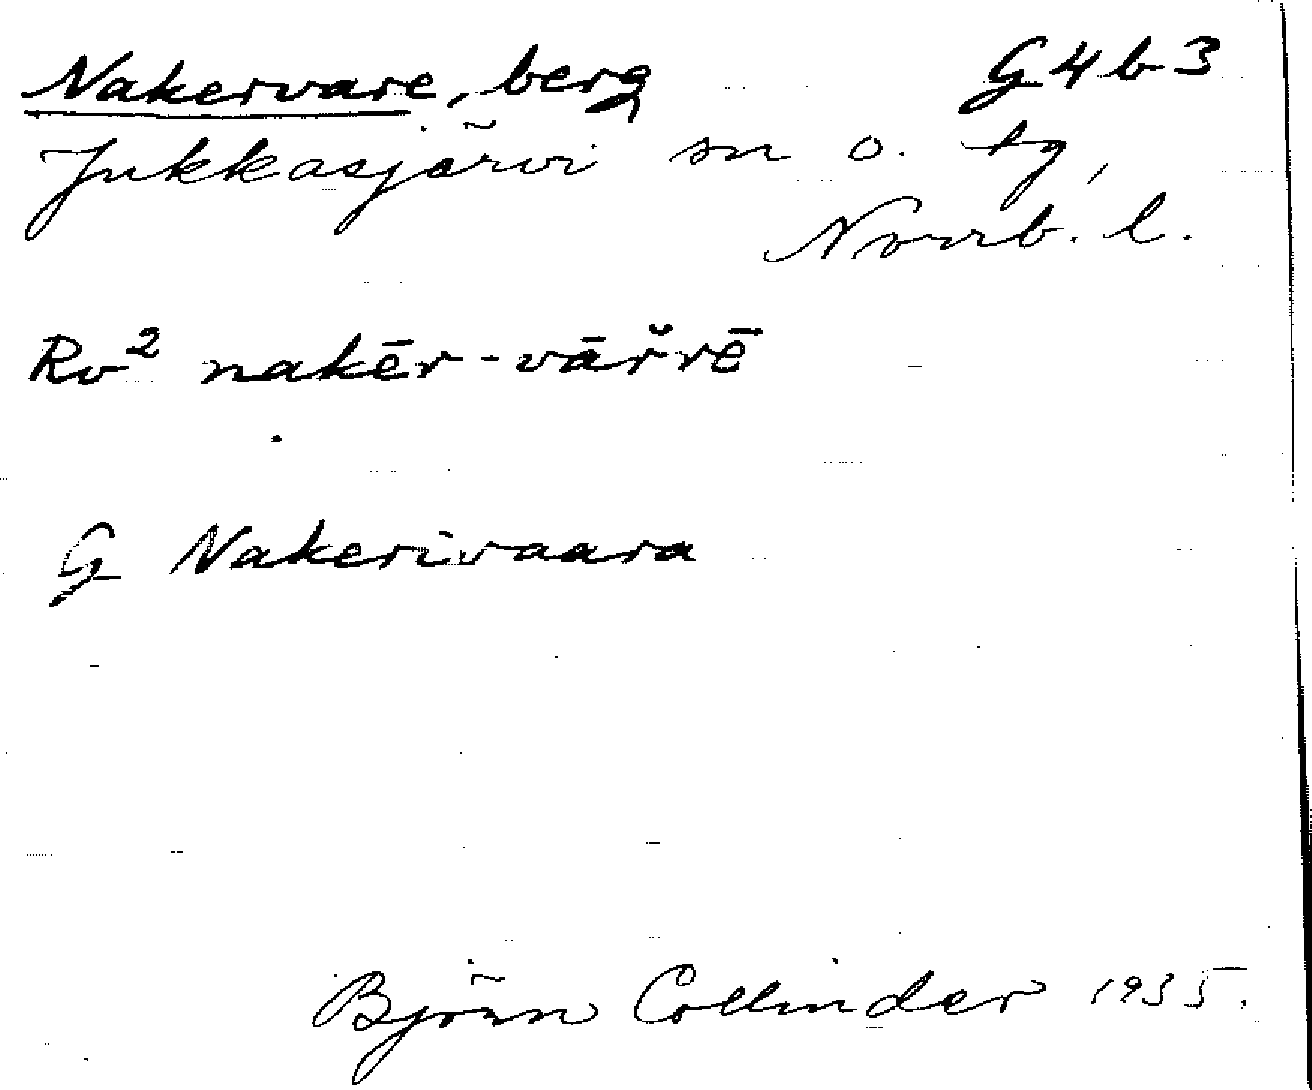 Nakervare, berg G4b3
Jukkasjärvi sn o. tg,
Norrb. l.
Rv² nakēr-vāřrē
G Nakerivaara
Björn Collinder 1935.